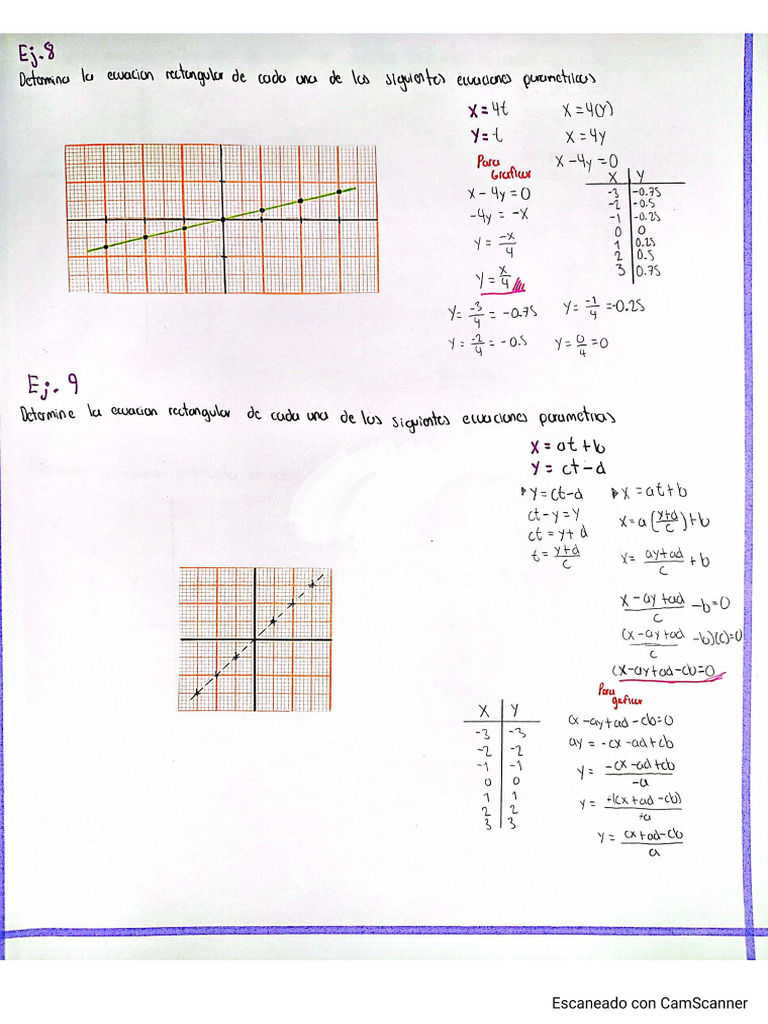 Ej.8
Determina la ecuacion rectangular de cada una de las siguientes ecuaciones parametricas
x = 4t
x = 4(y)
y = t
x = 4y
x - 4y = 0
Para
Graficar
x - 4y = 0
-4y = -x
y = -x/4
y = x/4
X Y
-3 -0.75
-2 -0.5
-1 -0.25
0 0
1 0.25
2 0.5
3 0.75
y = -3/4 = -0.75
y = -1/4 = -0.25
y = -2/4 = -0.5
y = 0/4 = 0
Ej. 9
Determine la ecuacion rectangular de cada una de las siguientes ecuaciones parametricas
x = at + b
y = ct - d
y = ct - d
ct - y = y
ct = y + d
t = y+d/c
x = at + b
x = a(y+d/c) + b
x = ay+ad/c + b
x - ay + ad/c - b = 0
(x - ay + ad/c - b)(c) = 0
cx - ay + ad - cb = 0
Para
graficar
cx - ay + ad - cb = 0
ay = -cx - ad + cb
y = -cx - ad + cb/-a
y = +(cx + ad - cb)/+a
y = cx + ad - cb/a
X Y
-3 -3
-2 -2
-1 -1
0 0
1 1
2 2
3 3
Escaneado con CamScanner